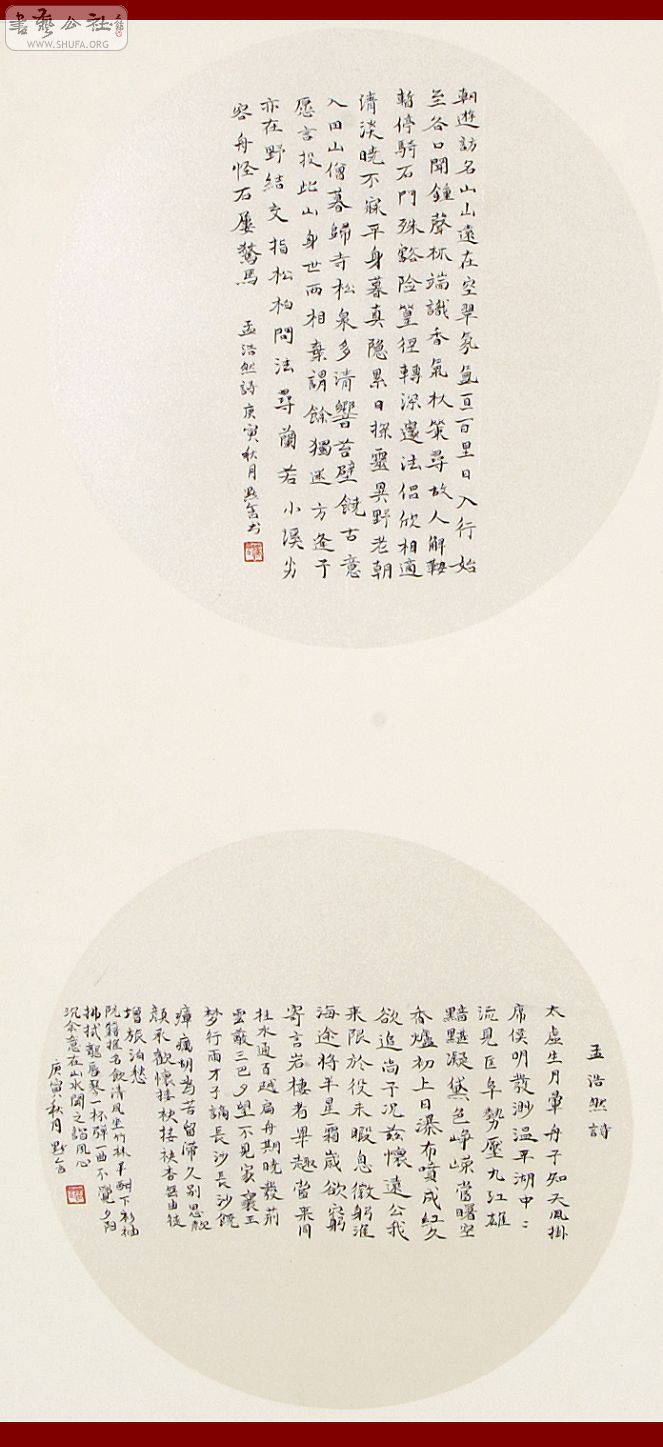 書藝公社
WWW.SHUFA.ORG
朝遊訪名山山遠在空翠氛氳亘百里日入行始
至谷口聞鍾聲林端識香氣杖策尋故人解鞍
暫停騎石門殊豁险篁徑轉深邃法侶欣相適
清淡曉不寐平身暮真隐累日探靈異野老朝
入田山僧暮歸寺松泉多清響苔壁饒古意
愿言投此山身世兩相棄謂餘獨迷方逢子
亦在野結交指松柏問法尋蘭若小溪劣
容舟怪石屢驚馬 孟浩然詩庚寅秋月默含书
孟浩然詩
太虛生月暈舟子知天風掛
席侯明發渺温平湖中〻
流見匡阜勢壓九江雄
黯黮凝黛色崢嶸當曙空
香爐初上日瀑布噴成虹久
欲追尚子况兹懷遠公我
來限於役未暇息微躬淮
海途將半星霜歲欲窮
寄言岩棲者畢趣當來同
桂水通百越扁舟期曉發荊
雲蔽三巴夕望不見家襄王
梦行雨才子謫長沙長沙饒
瘴癘胡為苦留滯久別思款
顏承歡懷接袂接袂杳無由徒
增旅泊愁
阮籍推名飲清風坐竹林半酣下衫袖
拂拭龍唇琴一杯彈一曲不覺夕陽
沉余意在山水聞之諧夙心
庚寅秋月默含